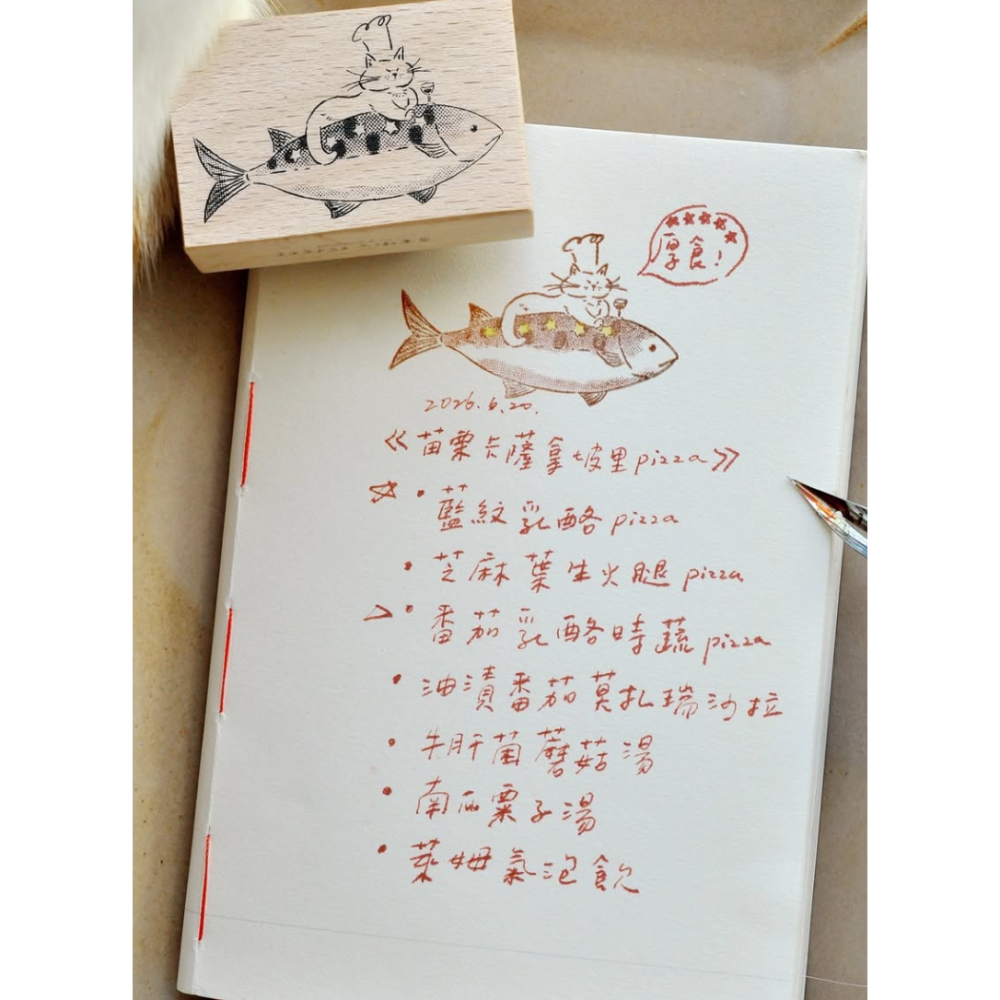 厚食!
2026.6.20.
《苗栗卡薩拿坡里pizza》
☆・藍紋乳酪pizza
・芝麻葉生火腿pizza
△・番茄乳酪時蔬pizza
・油漬番茄莫扎瑞沙拉
・牛肝菌蘑菇湯
・南瓜栗子湯
・萊姆氣泡飲